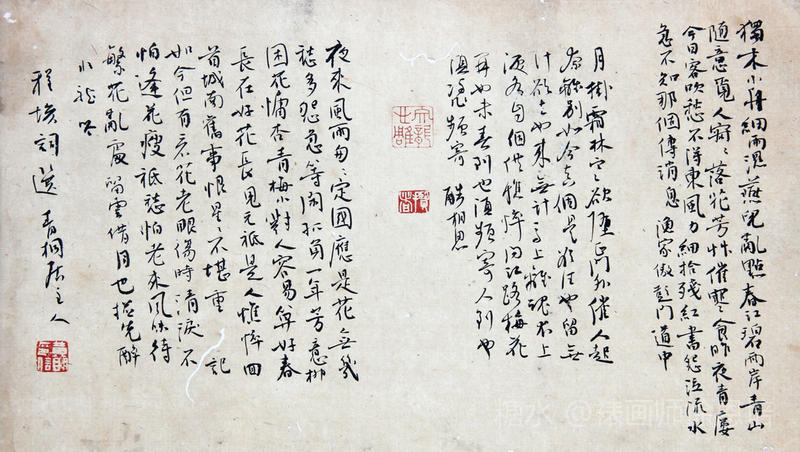 獨木小舟細雨濕燕兒亂點春江碧兩岸青山
随意覓人寂々落花芳草催寒食昨夜青廔
今日客吹愁不得東風力細拾殘紅書怨泣流水
急不知那個傳消息 漁家傲彭門道中
月掛霜林寒欲墮正門外催人起
奈離別如今真個是欲住也留無
計欲去也來無計馬上離魂衣上
淚各自個供憔悴問江路梅花
開也未春到也須頻寄人到也
須頻寄 酷相思
夜來風雨匆々定國應是花無幾
愁多怨急等閑孤負一年芳意柳
困花慵杏青梅小對人容易算好春
長在好花長見元祗是人憔悴回
首城南舊事恨星々不堪重記
如今但有看花老眼傷時清淚不
怕逢花瘦祗愁怕老來風味待
繁花亂處留雲借月也拚先醉
水龍吟
程垓詞選 青桐居主人
@裱画师